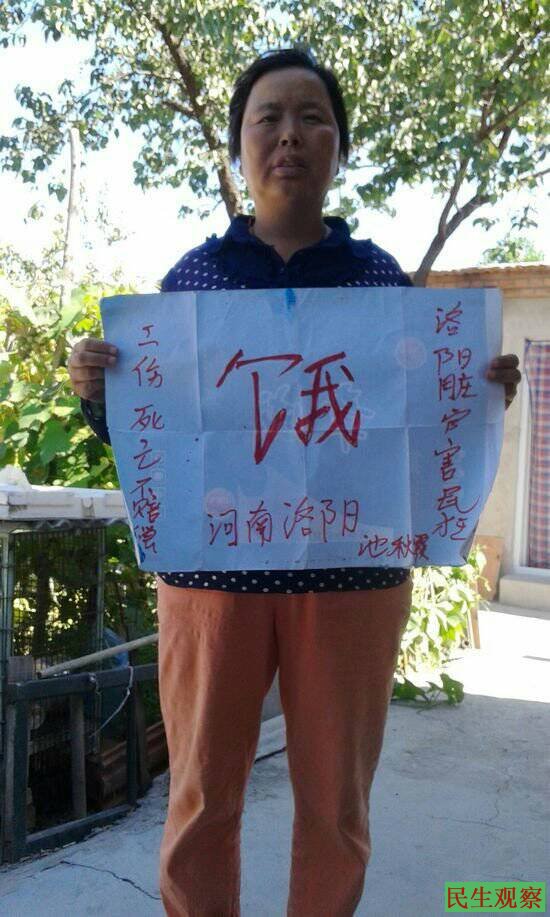 洛阳脏官害民
饿
工伤死亡不赔偿
河南洛阳
池秋霞
民生观察